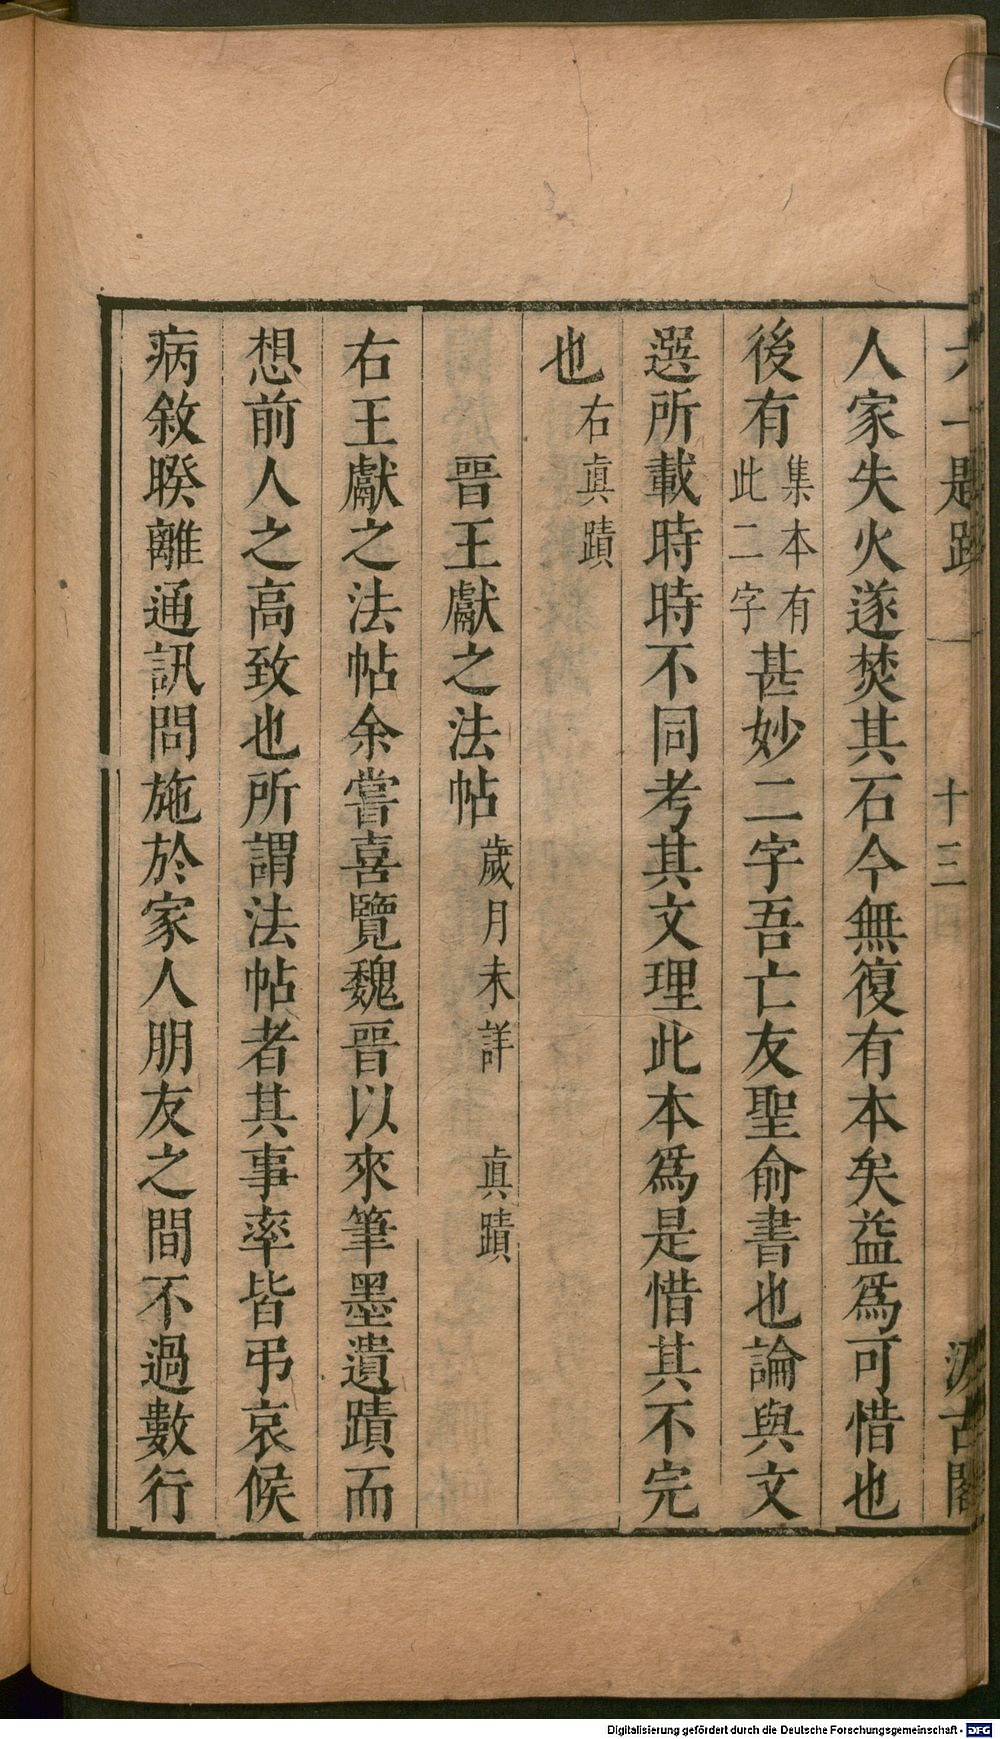 六一題跋 十三 汲古閣
人家失火遂焚其石今無復有本矣益爲可惜也
後有集本有此二字甚妙二字吾亡友聖俞書也論與文
選所載時時不同考其文理此本爲是惜其不完
也右眞蹟
晉王獻之法帖歲月未詳 眞蹟
右王獻之法帖余嘗喜覽魏晉以來筆墨遺蹟而
想前人之高致也所謂法帖者其事率皆弔哀候
病敘暌離通訊問施於家人朋友之間不過數行
Digitalisierung gefördert durch die Deutsche Forschungsgemeinschaft - DFG